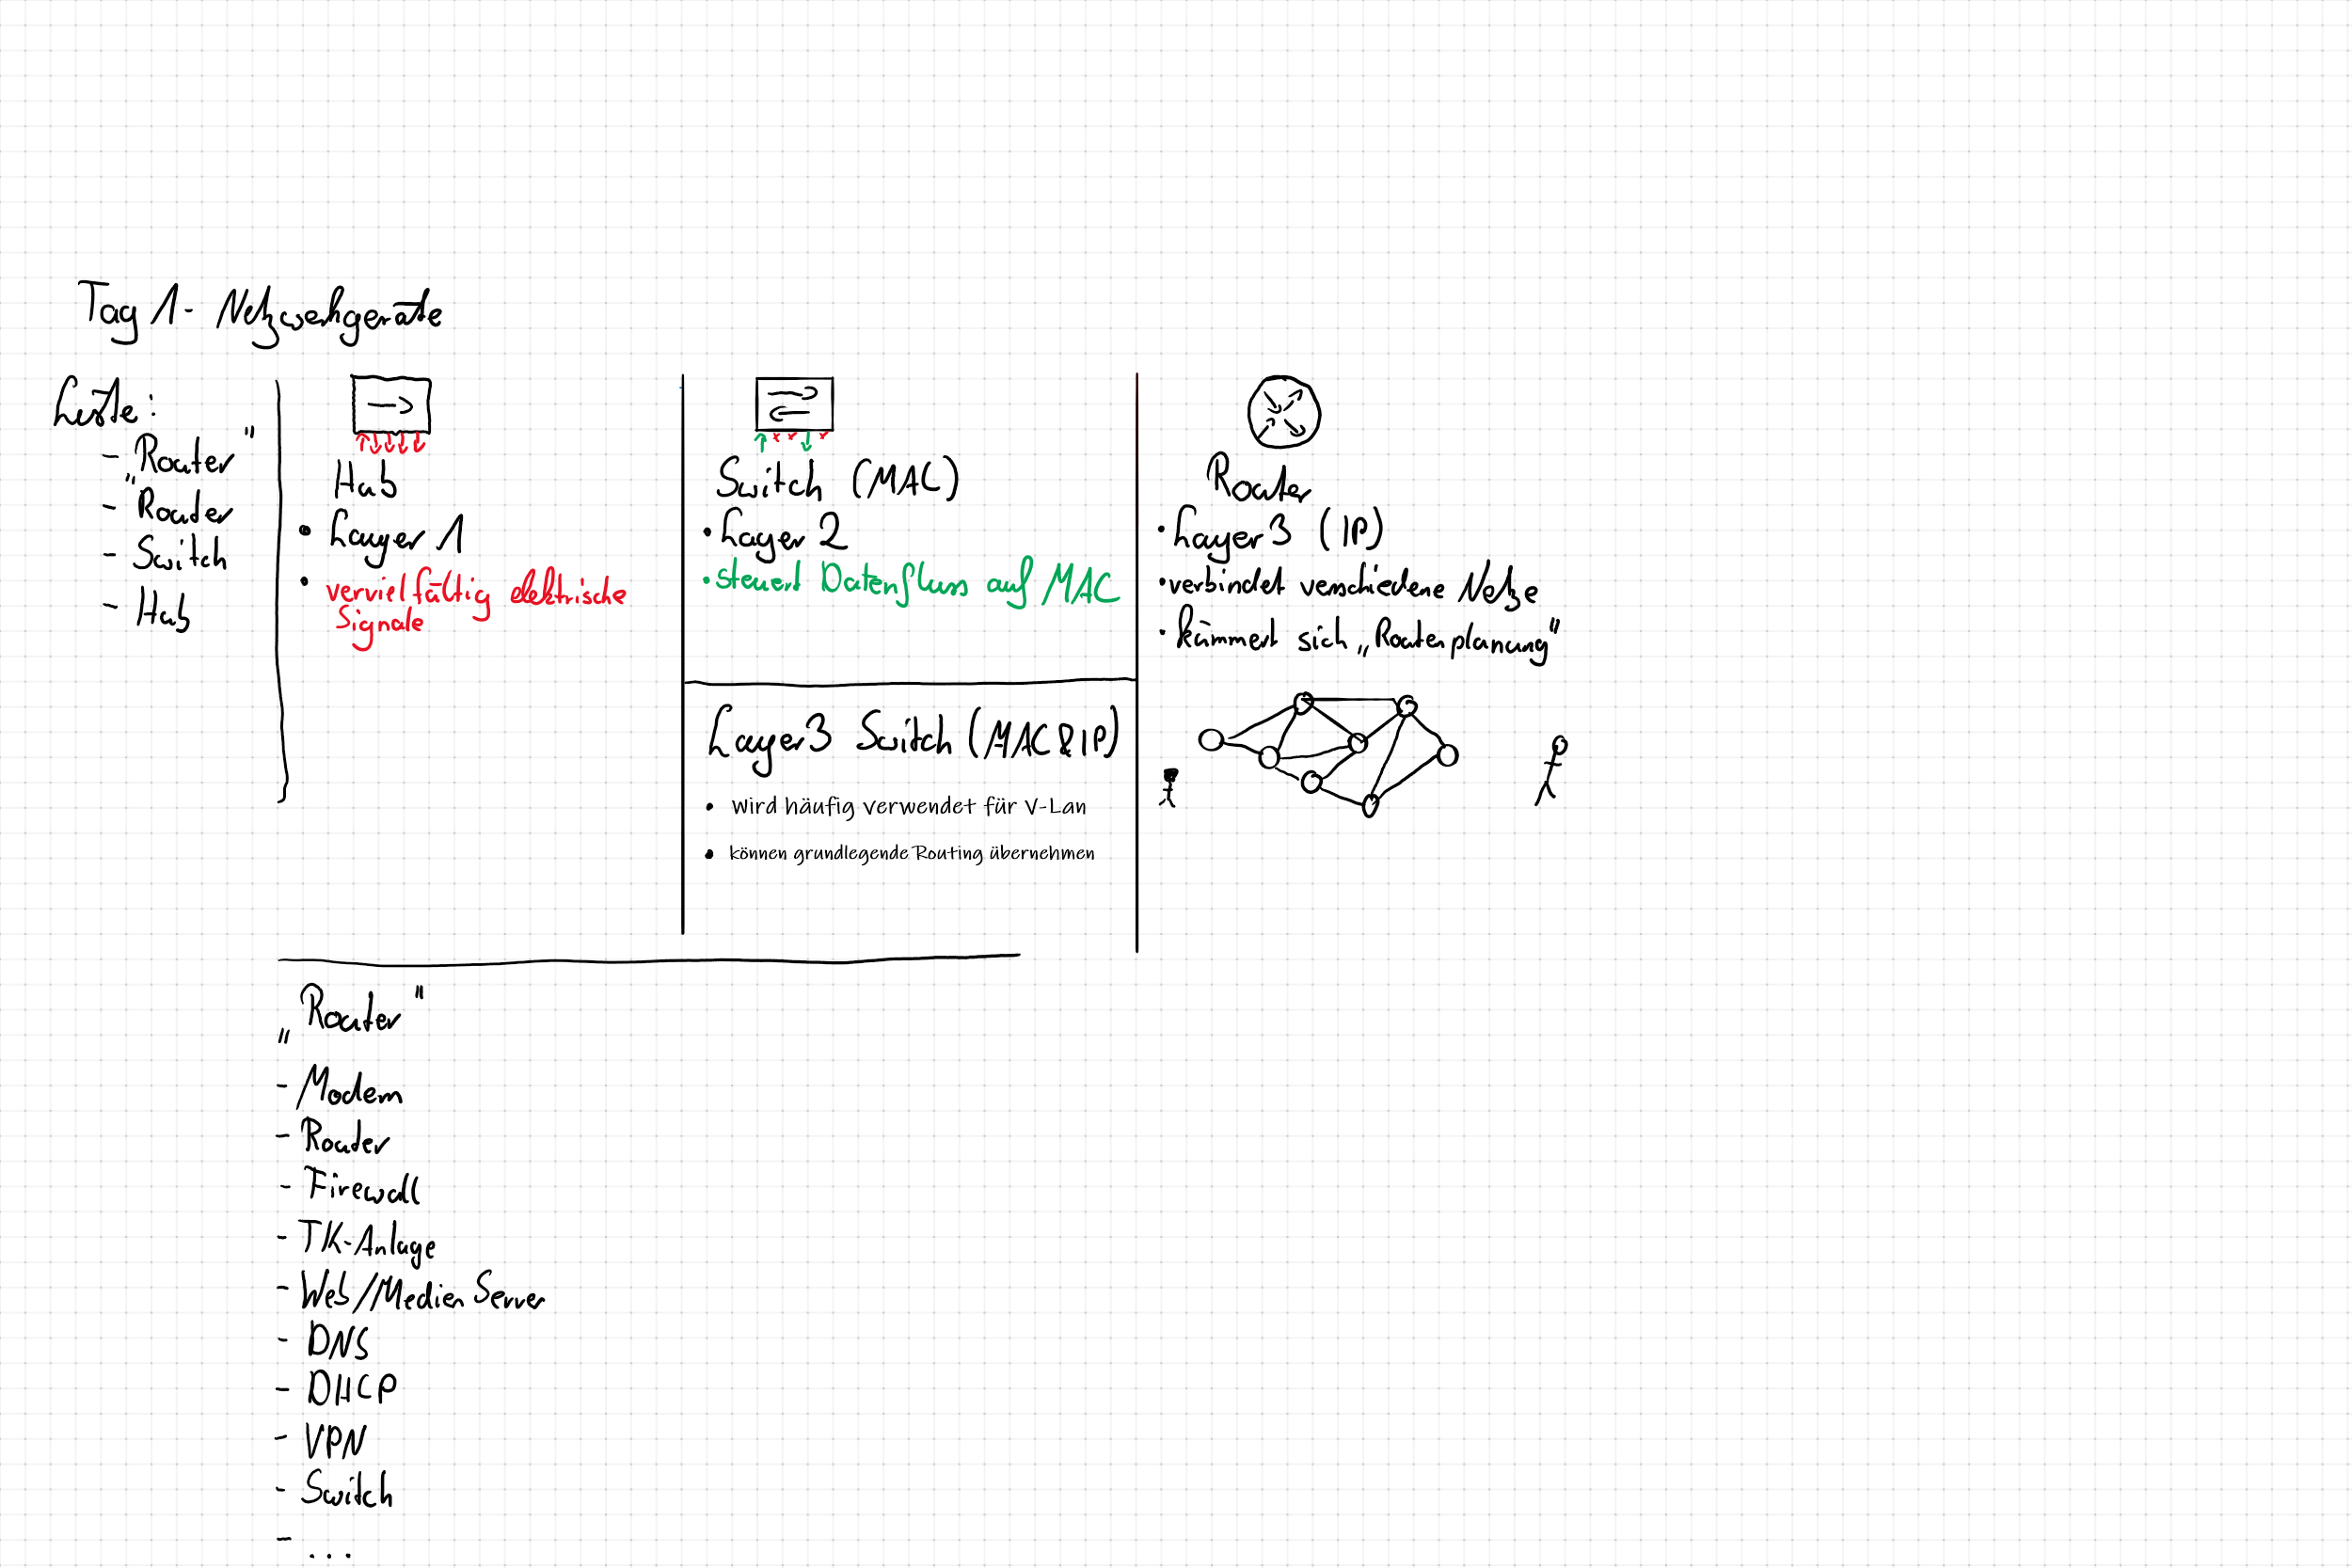 Tag 1 - Netzwerkgeräte
Liste:
- „Router"
- Router
- Switch
- Hub
Hub
• Layer 1
• vervielfältig elektrische
Signale
Switch (MAC)
• Layer 2
• steuert Datenfluss auf MAC
Layer3 Switch (MAC&IP)
• wird häufig verwendet für V-Lan
• können grundlegende Routing übernehmen
Router
• Layer 3 (IP)
• verbindet verschiedene Netze
• kümmert sich „Routenplanung"
„Router"
- Modem
- Router
- Firewall
- TK-Anlage
- Web/Medien Server
- DNS
- DHCP
- VPN
- Switch
- ...